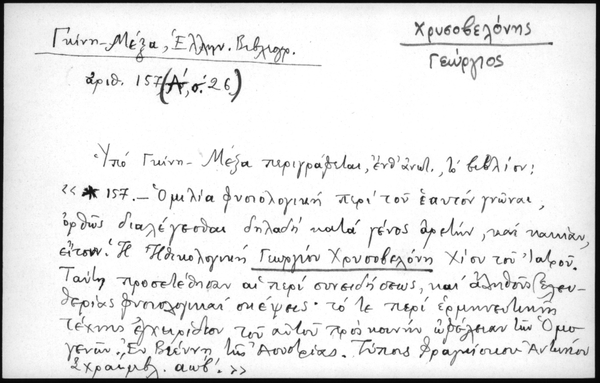 Γκίνη-Μέξα, Ἑλλην. Βιβλιογρ.
ἀριθ. 157 (Α΄, σ. 26)
Χρυσοβελόνης
Γεώργιος
Ὑπό Γκίνη-Μέξα περιγράφεται, ἔνθ' ἀνωτ., τό βιβλίον:
«* 157. — Ὁμιλία φυσιολογική περί τοῦ ἑαυτόν γνῶναι,
ὀρθῶς διαλέγεσθαι δηλαδή κατά γένος ἀρετήν, καί κακίαν,
εἴτουν. Ἡ Ἠθικολογική Γεωργίου Χρυσοβελόνη Χίου τοῦ Ἰατροῦ.
Ταύτῃ προσετέθησαν αἱ περί συνειδήσεως, καί ἀληθοῦς ἐλευ-
θερίας φυσιολογικαί σκέψεις· τό τε περί ἑρμηνευτικῆς
τέχνης ἐγχειρίδιον τοῦ αὐτοῦ πρός κοινήν ὠφέλειαν τῶν Ὁμο-
γενῶν. Ἐν Βιέννῃ τῆς Αουστρίας. Τύποις Φραγκίσκου Ἀντωνίου
Σχραιμβλ. αωβ΄. »